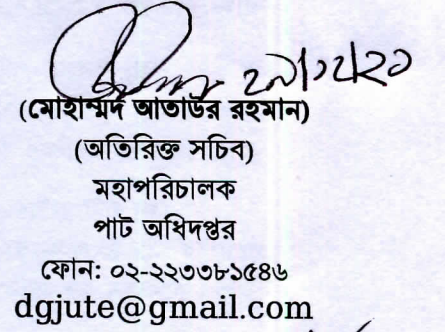 ২৯/১২/২১
(মোহাম্মদ আতাউর রহমান)
(অতিরিক্ত সচিব)
মহাপরিচালক
পাট অধিদপ্তর
ফোন: ০২-২২৩৩৮১৫৪৬
dgjute@gmail.com